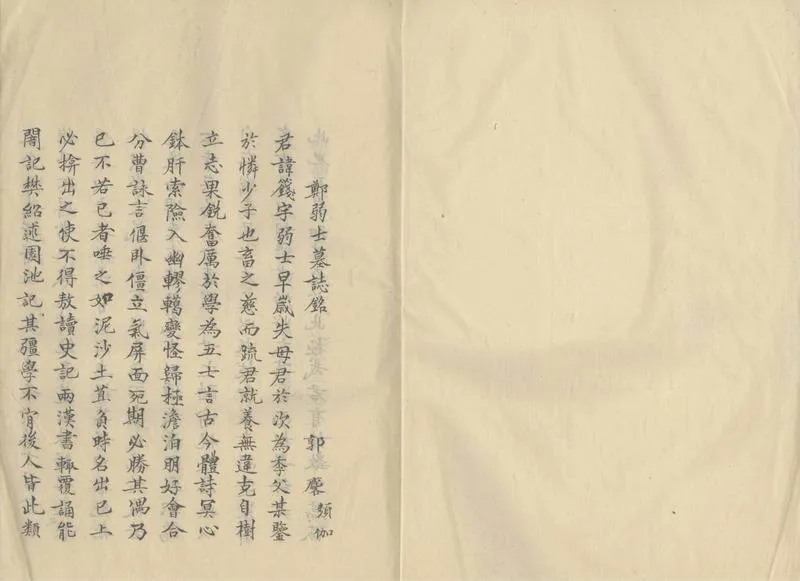 鄭弱士墓誌銘 郭麐頻伽
君諱籛字弱士早歲失母君於次為季父某鑒
於憐少子也畜之慈而疏君就養無違克自樹
立志果銳奮厲於學為五七言古今體詩冥心
鉥肝索險入幽轇轕變怪歸極澹泊朋好會合
分曹詠言偃臥僵立氣屏面死期必勝其偶乃
已不若已者唾之如泥沙土苴負時名出已上
必擠出之使不得敖讀史記兩漢書輒覆誦能
闇記樊紹述園池記其彊學不肎後人皆此類